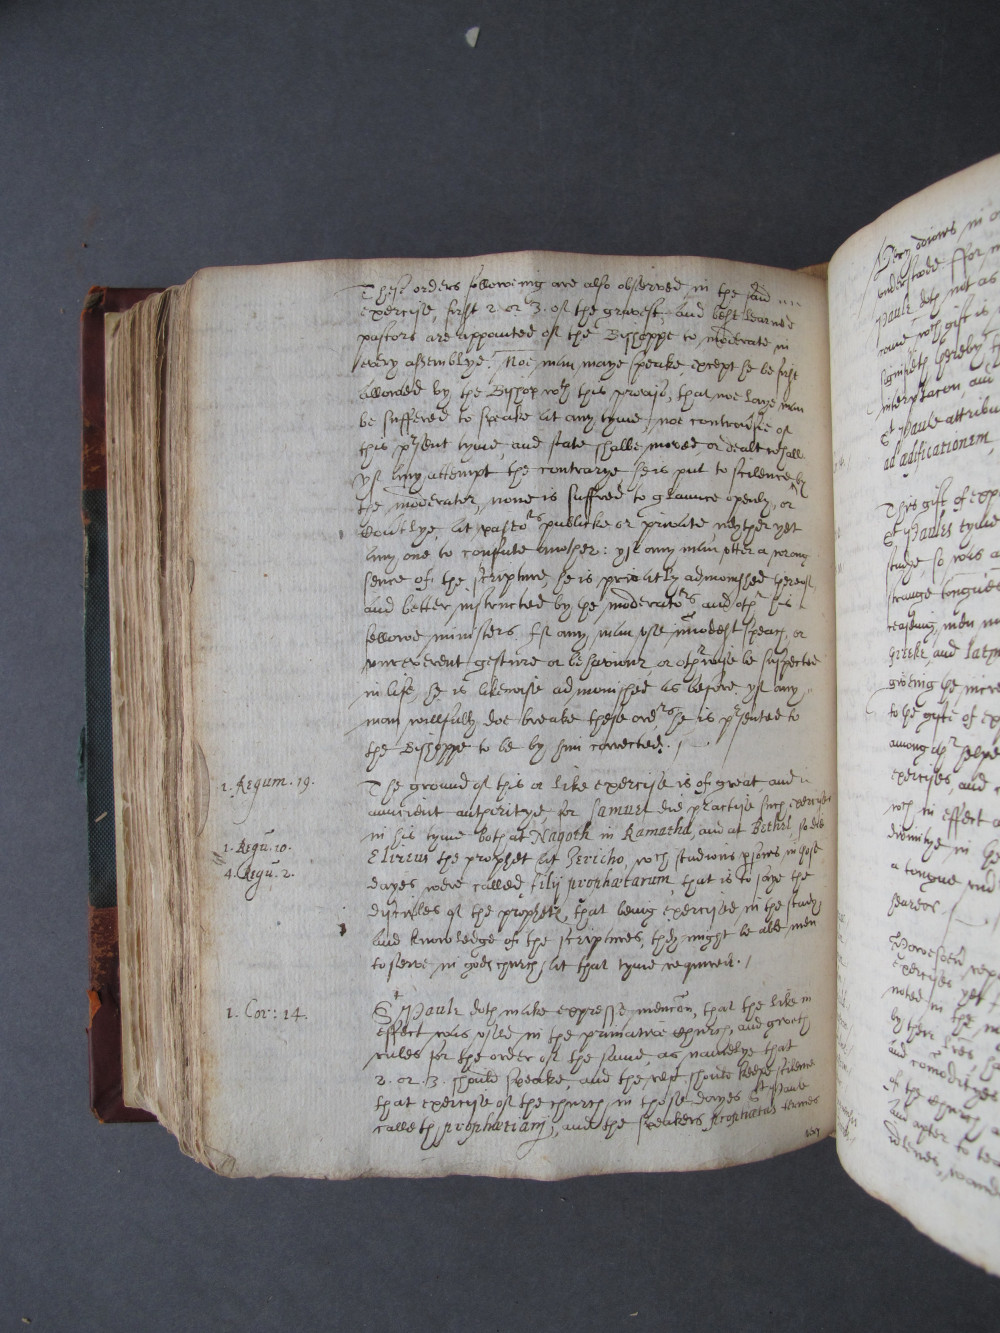 These orders followinge are also observed in the said
exercise, first 2 or 3. of the gravest, and best learned
pastors are appointed of the Bisshoppe to moderate in
every assemblye. Noe man maye speake except he be first
allowed by the Bishop wth this proviso, that noe laye man
be suffered to speake at any tyme, noe controversie of
this pr̃sent tyme, and state shalbe moved, or dealt wthall
yf any attempt the contrarye he is put to scilence by
the moderator, none is suffred to glaunce openly, or
at pastors publicke or private neyther yet
any one to confute another: yf any man utter a wrong
sence of the scripture, he is privatly admonished thereof,
and better instructed by the moderators and othr his
fellowe ministers. If any man use imodest speach, or
unreverent gesture or behaviour or othrwise be suspected
in life, he is likewise admonished as before. yf any
man willfully doe breake these ordrs he is pr̃sented to
the Bisshoppe to be by him corrected. /
1. Regum. 19.
The ground of this or like exercise is of great, and
auncient authoritye for Samuel did practise such exercises
in his tyme both at Nagoth in Ramatha, and at Bethel, so did
1. Regu. 10.
Elizeus the prophet at Jericho, wch studious psones in those
4. Regu. 2.
dayes were called filij prophatarum that is to saye the
disciples of the prophets, that being exercised in the study
and knowledge of the scriptures, they might be able men
to serve in gods church, at that tyme required. /
1. Cor: 14.
St Paule doth make expresse mencon, that the like in
effect was used in the primative church, and giveth
rules for the order of the same, as namelye that
2. or. 3. should speake, and the rest should keepe scilence
that exercise of the church in those dayes St Paule
calleth prophætiam, and the speakers prophætas termes
very
Very
understode for
Paule doth not as
come wch gift is
signifieth hereby
interpretacon and
St Paule attribu
ad ædificationem,
This gift of exp
St Paules tyme
study, so was a
strange tongues
ceasing, men m
Greeke, and latyn
giveing he incre
to the gifte of ex
among othr helpe
exercises, and
wch in effect a
divinitye in the
a tongue, and
hearers.
Howe
exercises yet
noted in the
by there
and comodityes
of the church
and apter to tea